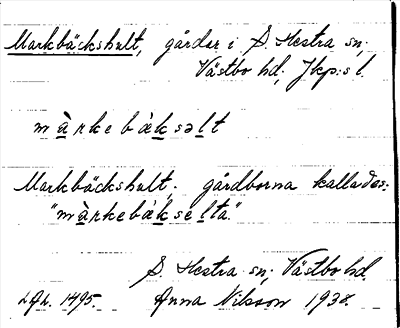 Markbäckshult, gårdar i S. Hestra sn;
Västbo hd; Jkp:s l.
màrkebàksəlt
Markbäckshult; gårdborna kallades:
"màrkebàkselta."
S. Hestra sn; Västbo hd.
1495. Anna Nilsson 1938.